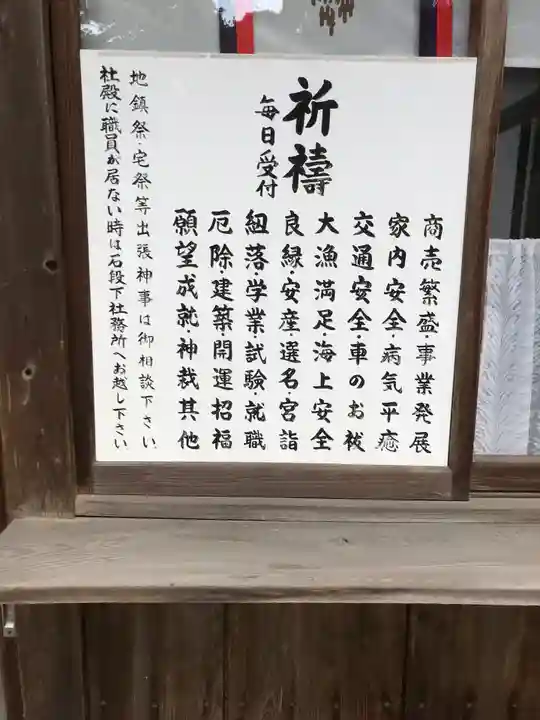 祈禱
毎日受付
商売繁盛・事業発展
家内安全・病気平癒
交通安全・車のお祓
大漁満足・海上安全
良縁・安産・選名・宮詣
紐落・学業・試験・就職
厄除・建築・開運招福
願望成就神裁其他
地鎮祭・宅祭等出張神事は御相談下さい
社殿に職員が居ない時は石段下社務所へお越し下さい